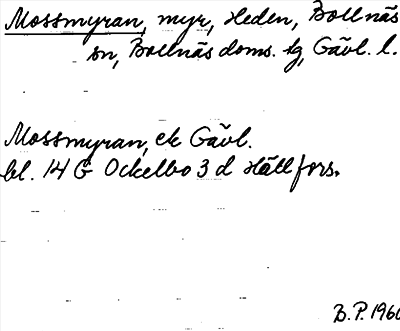 Mossmyran, myr, Heden, Bollnäs
sn, Bollnäs doms. lg, Gävl. l.
Mossmyran, ek Gävl.
bl. 14 G Ockelbo 3 d Hällfors.
B.P. 1960